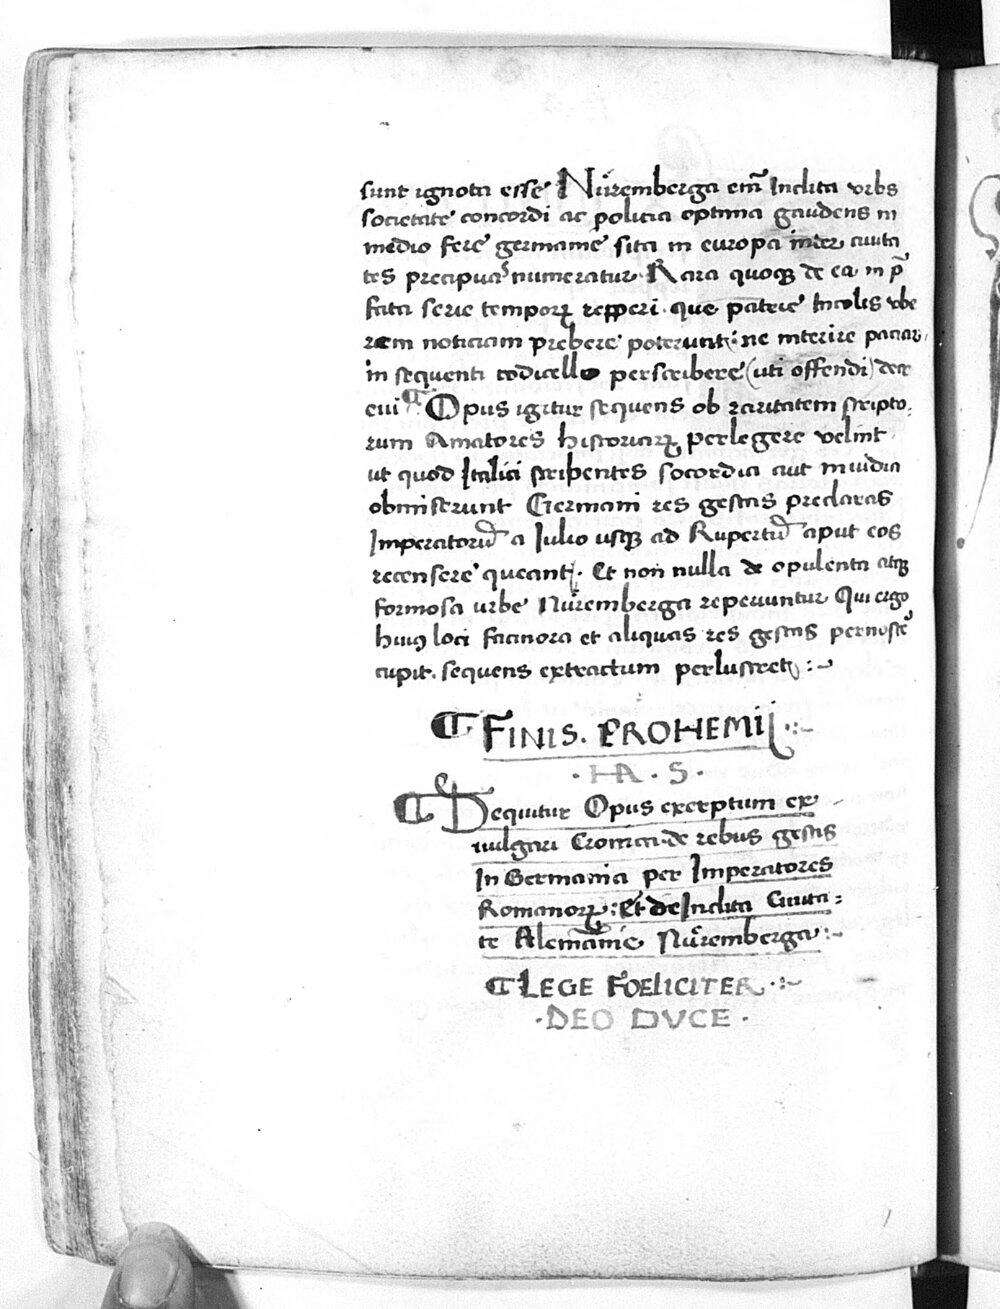 sunt ignota esse Nuremberga em̄ Inclita vrbs
societate concordi ac policia optima gaudens in
medio fere germanie sita in europa inter ciuita
tes precipuas numeratur Rara quoqꝫ de ea in p̄
fata serie temporꝝ repperi. que patrie Incolis vbe
rem noticiam prebere poterunt: ne interire paciar,
in sequenti codicello perscribere (uti offendi) decr
eui ¶ Opus igitur sequens ob raritatem scripto,
rum Amatores historiarꝝ perlegere velint
ut quod Italici scribentes socordia aut inuidia
obmiserunt Germani res gestas preclaras
Imperatorū a Iulio usqꝫ ad Rupertū aput eos
recensere queant. Et non nulla de opulenta atqꝫ
formosa urbe Nuremberga reperiuntur Qui ergo
huiꝰ loci facinora et aliquas res gestas pernosce
cupit. sequens extractum perlustret :~
¶ FINIS. PROHEMII :~
·HA·S·
¶ Sequitur Opus exceptum ex
uulgari Cronica de rebus gestis
In Germania per Imperatores
Romanorꝝ: Et de Inclita Ciuita=
te Alemānie Nuremberga :~
¶ LEGE FOELICITER :~
·DEO DVCE·